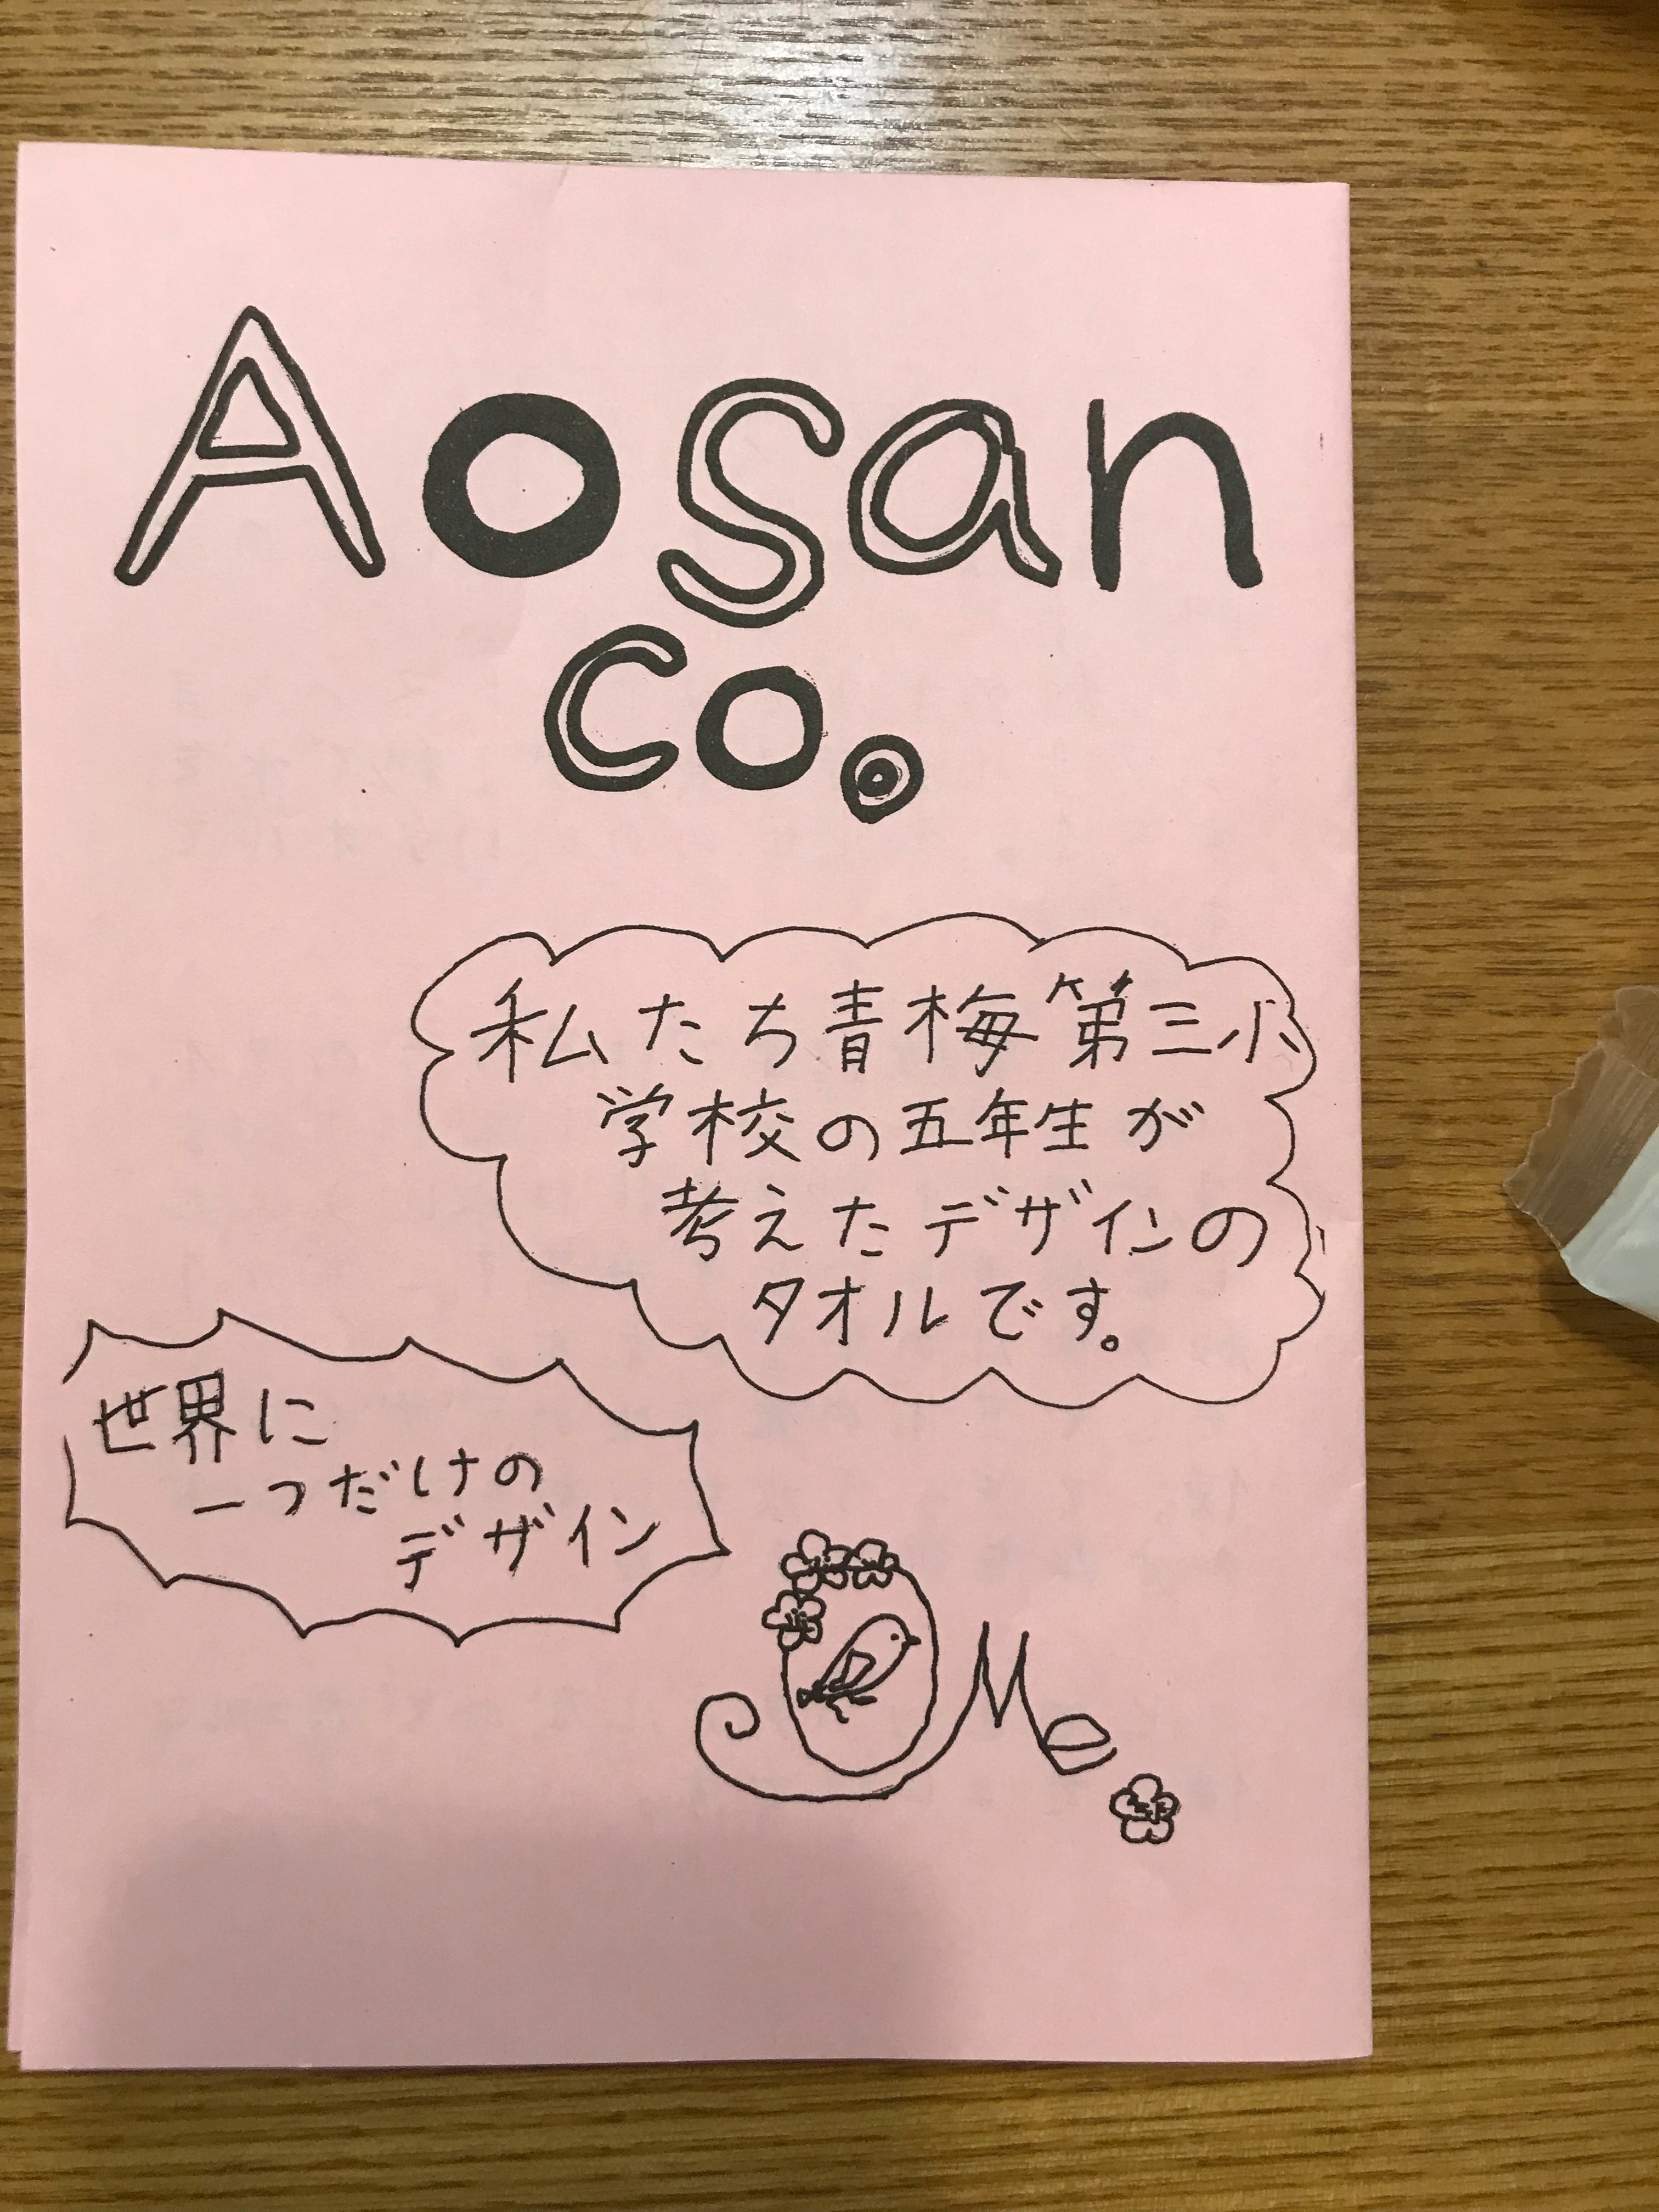 Aosan
co.
私たち青梅第三小
学校の五年生が
考えたデザインの
タオルです。
世界に
一つだけの
デザイン
Ome